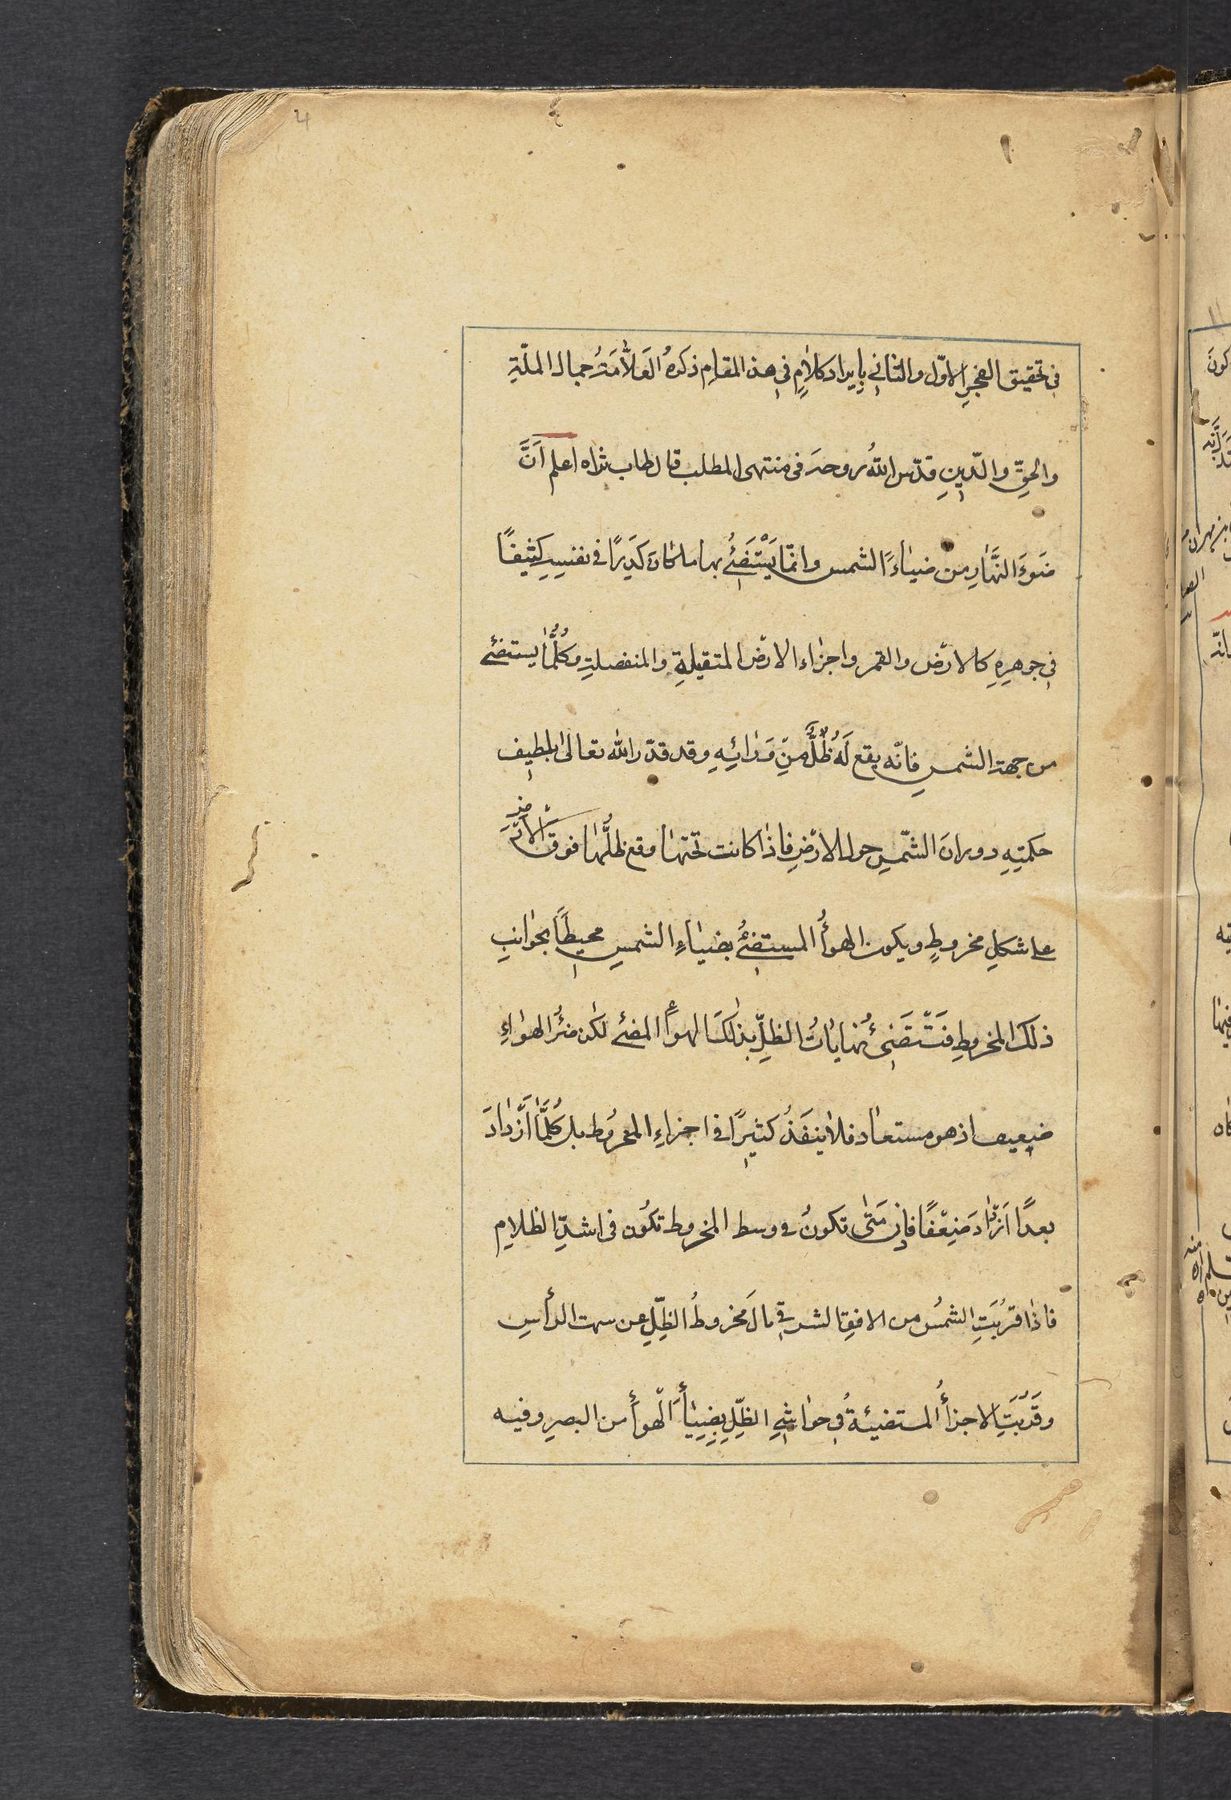 في تحقيق الفجرِ الاوّل والثاني بايراد كلامٍ في هذ المقامِ ذكرهُ العَلّامَةُ جمال الملّةِ
والحقِّ والدّينِ قدّس اللهُ روحهَ فى منتهى المطلب قال طاب ثراه اعلم اَنَّ
ضَوءَ النَّهٰارِ من ضيٰاءَ الشمس وانّمٰا يَسْتَضئُ بها ما كان كَدِرًا في نفسِهِ كثيفًا
في جوهرِهِ كالارْض والقمر واجزٰاء الارْض المتقيلةِ والمنفصلةِ وكُلُّمٰا يستضئ
من جهة الشمسِ فانّه يقع لَهُ ظُلٌّ مِنّ وَرٰائِهِ وقد قدّر الله تعالى بلطيف
حكمتِهِ دوران الشّمسِ حول الارْضِ فاذٰا كانت تحتهٰا وقع ظلُّهٰا فوقَ الاَرْضِ
على شكلِ مخروطٍ ويكون الهوأُ المستضئُ بضيٰاءِ الشمسِ محيطًا بجوٰانبِ
ذلك المخروطِ فَتَسْتَضئُ نهايٰاتُ الظلِّ بذٰلكَ الهوأ المضئ لكن ضؤُ الهوٰاءِ
ضعيف اذ هو مستعٰار فلٰا ينفَذُ كثيرًا في اجزاءِ المخروط بل كُلَّمٰا اَزْدٰادَ
بعدًا اَزْدٰادَ ضَعْفًا فاِذن مَتٰى تكونُ في وسط المخروط تكُون في اشدِّ الظلامِ
فاذٰا قرُبَتِ الشمسُ من الافقِ الشرقيِّ مالَ مخروطُ الظِّلِ عن سمت الرأسِ
وقَرُبَتِ الاجزأُ المستضيئةُ في حوٰاشي الظِّلِ بِضِيٰأَ الْهوأ من البصرِ وفيه